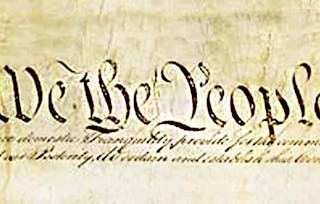 We the People
domestic Tranquility, provide for the common
our Posterity, do ordain and establish this